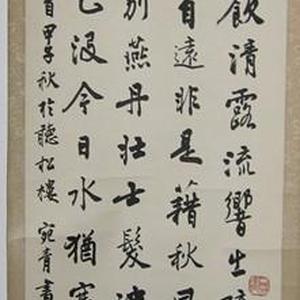 飲清露流響出
自遠非是藉秋風
別燕丹壯士髮
已沒今日水猶寒
首甲子秋於聽松樓 宛青書